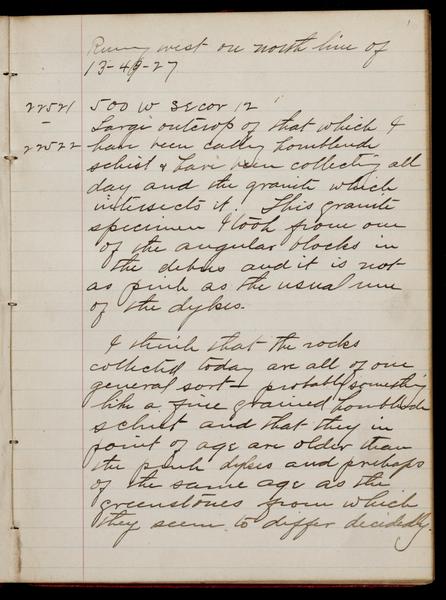 Runing west on north line of
13-49-27
22521 500 W SE cor 12
-
Large outcrop of that which I
22522 have been calling hornblende
schist & have been collecting all
day and the granite which
intersects it. This granite
specimen I took from one
of the angular blocks in
the debris and it is not
as pink as the usual run
of the dykes.
I think that the rocks
collected today are all of one
general sort - probably something
like a fine grained hornblende
schist and that they in
point of age are older than
the pink dykes and prehaps
of the same age as the
greenstones from which
they seem to differ decidedly.